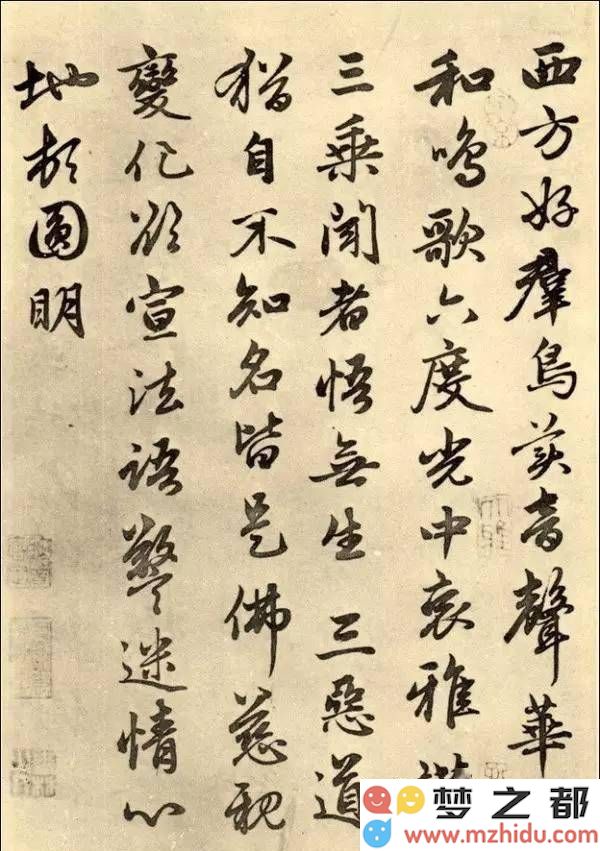 西方好羣鳥美音聲華
和鳴歌六度光中哀雅
三乗聞者悟無生 三惡道
猶自不知名皆是佛慈親
變化欲宣法語警迷情心
地頓圓明
梦之都
www.mzhidu.com